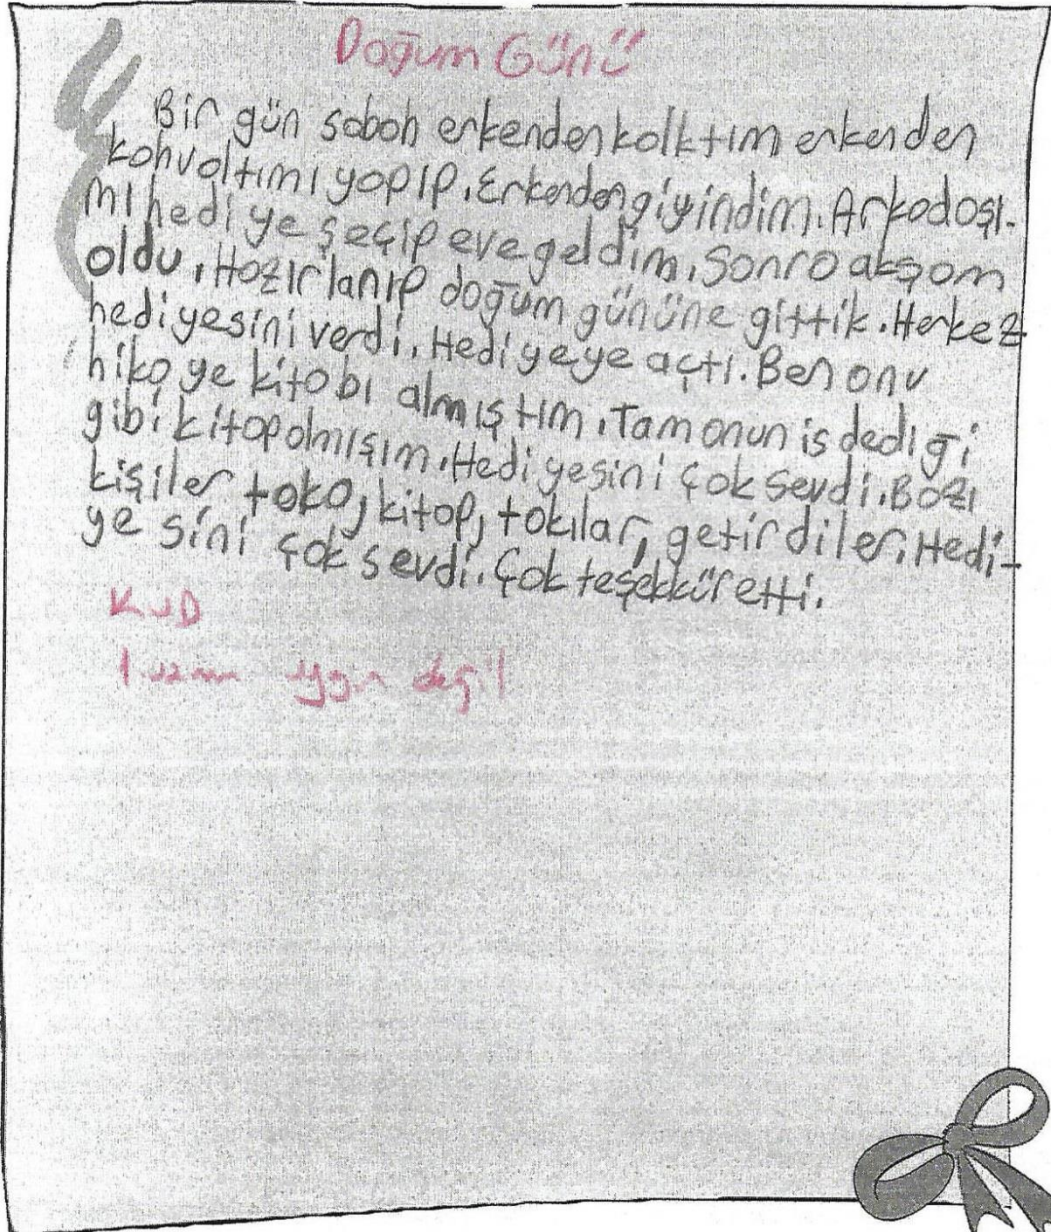 Doğum Günü
Bir gün saboh erkenden kolktım erkenden
kohvoltımı yopıp. Erkenden giyindim. Arkodoşı-
mı hediye şeçip eve geldim. Sonro akşom
oldu. Hozırlanıp doğum gününe gittik. Herkez
hediyesini verdi. Hediyeye açtı. Ben onu
hikoye kitobı almıştım. Tam onun is dediği
gibi kitop olmışım. Hediyesini çok sevdi. Bozı
kişiler toko, kitop, tokılar, getirdiler. Hedi-
yesini çok sevdi. Çok teşekkür etti.
KUD
uygun değil